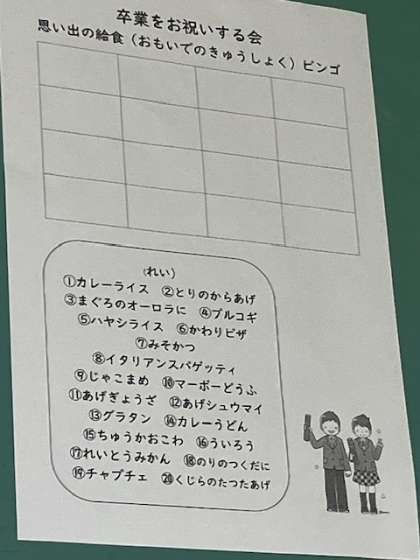 卒業をお祝いする会
思い出の給食（おもいでのきゅうしょく）ビンゴ
（れい）
①カレーライス ②とりのからあげ
③まぐろのオーロラに ④プルコギ
⑤ハヤシライス ⑥かわりピザ
⑦みそかつ
⑧イタリアンスパゲッティ
⑨じゃこまめ ⑩マーボーどうふ
⑪あげぎょうざ ⑫あげシュウマイ
⑬グラタン ⑭カレーうどん
⑮ちゅうかおこわ ⑯ういろう
⑰れいとうみかん ⑱のりのつくだに
⑲チャプチェ ⑳くじらのたつたあげ